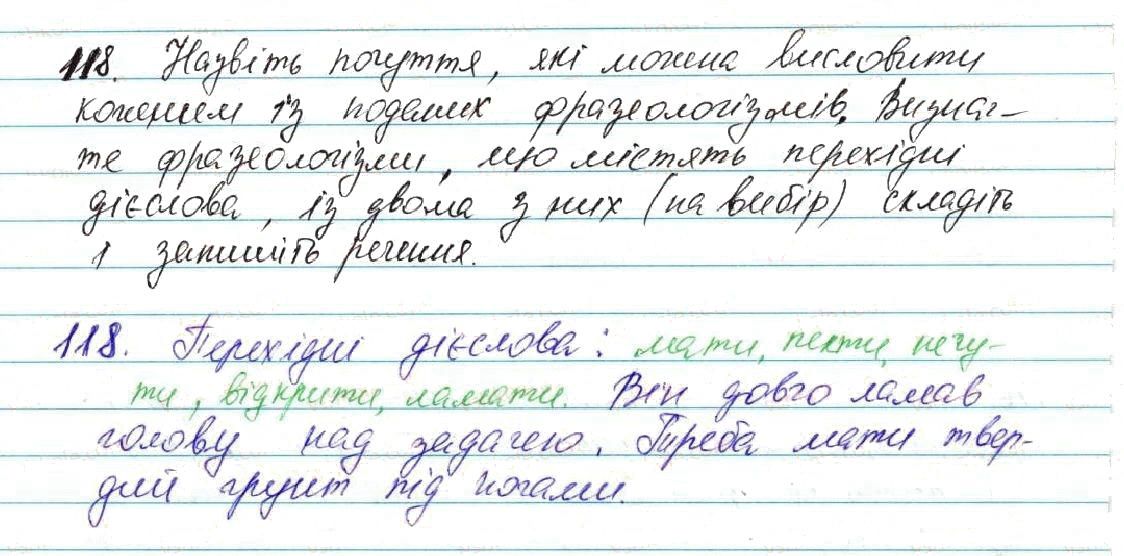 118. Назвіть почуття, які можна висловити
кожним із поданих фразеологізмів. Визнач-
те фразеологізми, що містять перехідні
дієслова, із двома з них (на вибір) складіть
і запишіть речення.
118. Перехідні дієслова: мати, пекти, чу-
ти, відкрити, ламати. Він довго ламав
голову над задачею. Треба мати твер-
дий грунт під ногами.